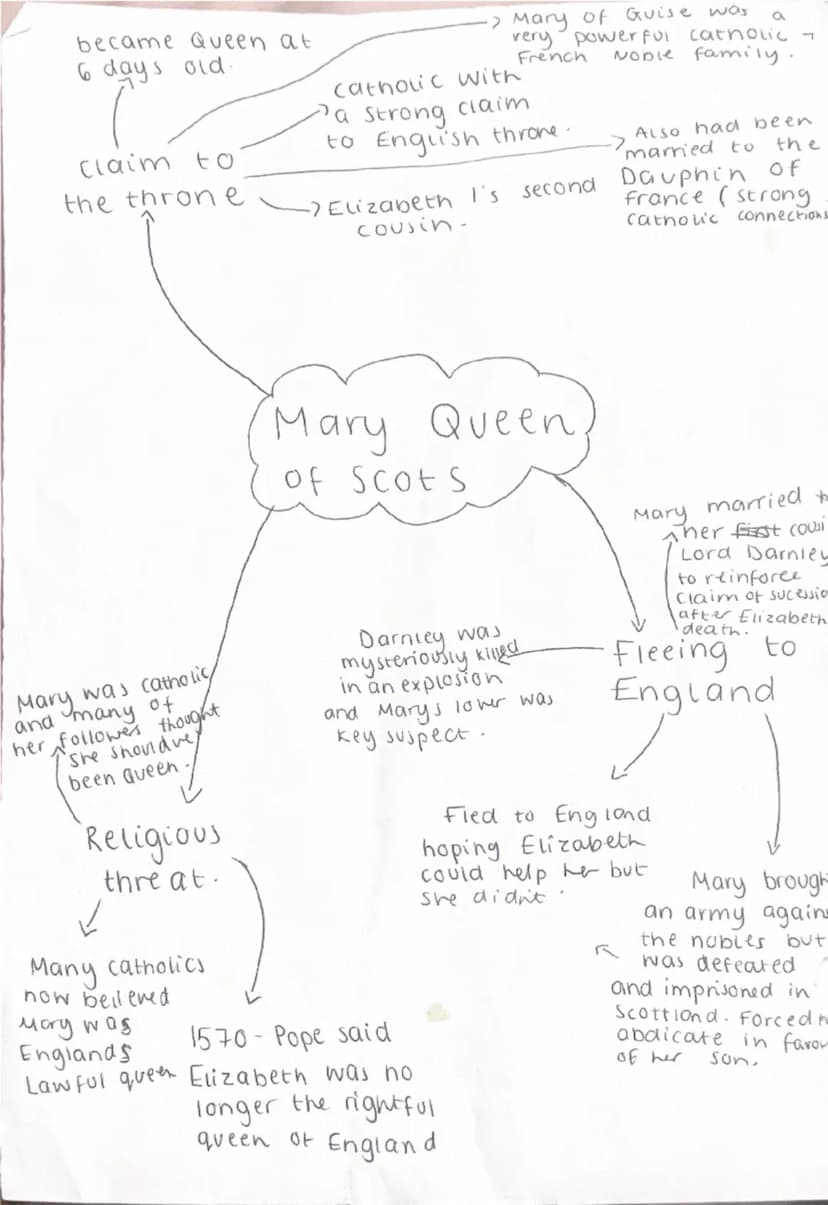 became Queen at
6 days old.
Mary of Guise was a
very powerful catholic
French Noble family.
catholic with
a strong claim
to English throne.
Also had been
married to the
Dauphin of
France (strong
catholic connections
claim to
the throne
Elizabeth I's second
cousin.
Mary Queen
of Scots
Mary married
her first
Lord Darnley
to reinforce
claim of sucessio
after Elizabeth
death.
Fleeing to
England
Darnley was
mysteriously killed
in an explosion
and Marys lover was
key suspect.
Fled to England
hoping Elizabeth
could help her but
she didn't.
Mary brough
an army again
the nobles but
was defeated
and imprisoned in
Scottland. Forced
abdicate in favou
of her son.
Mary was catholic
and many of
her followes thought
she should've
been queen.
Religious
threat.
Many catholics
now believed
Mary was
Englands
Lawful queen
1570 - Pope said
Elizabeth was no
longer the rightful
queen of England